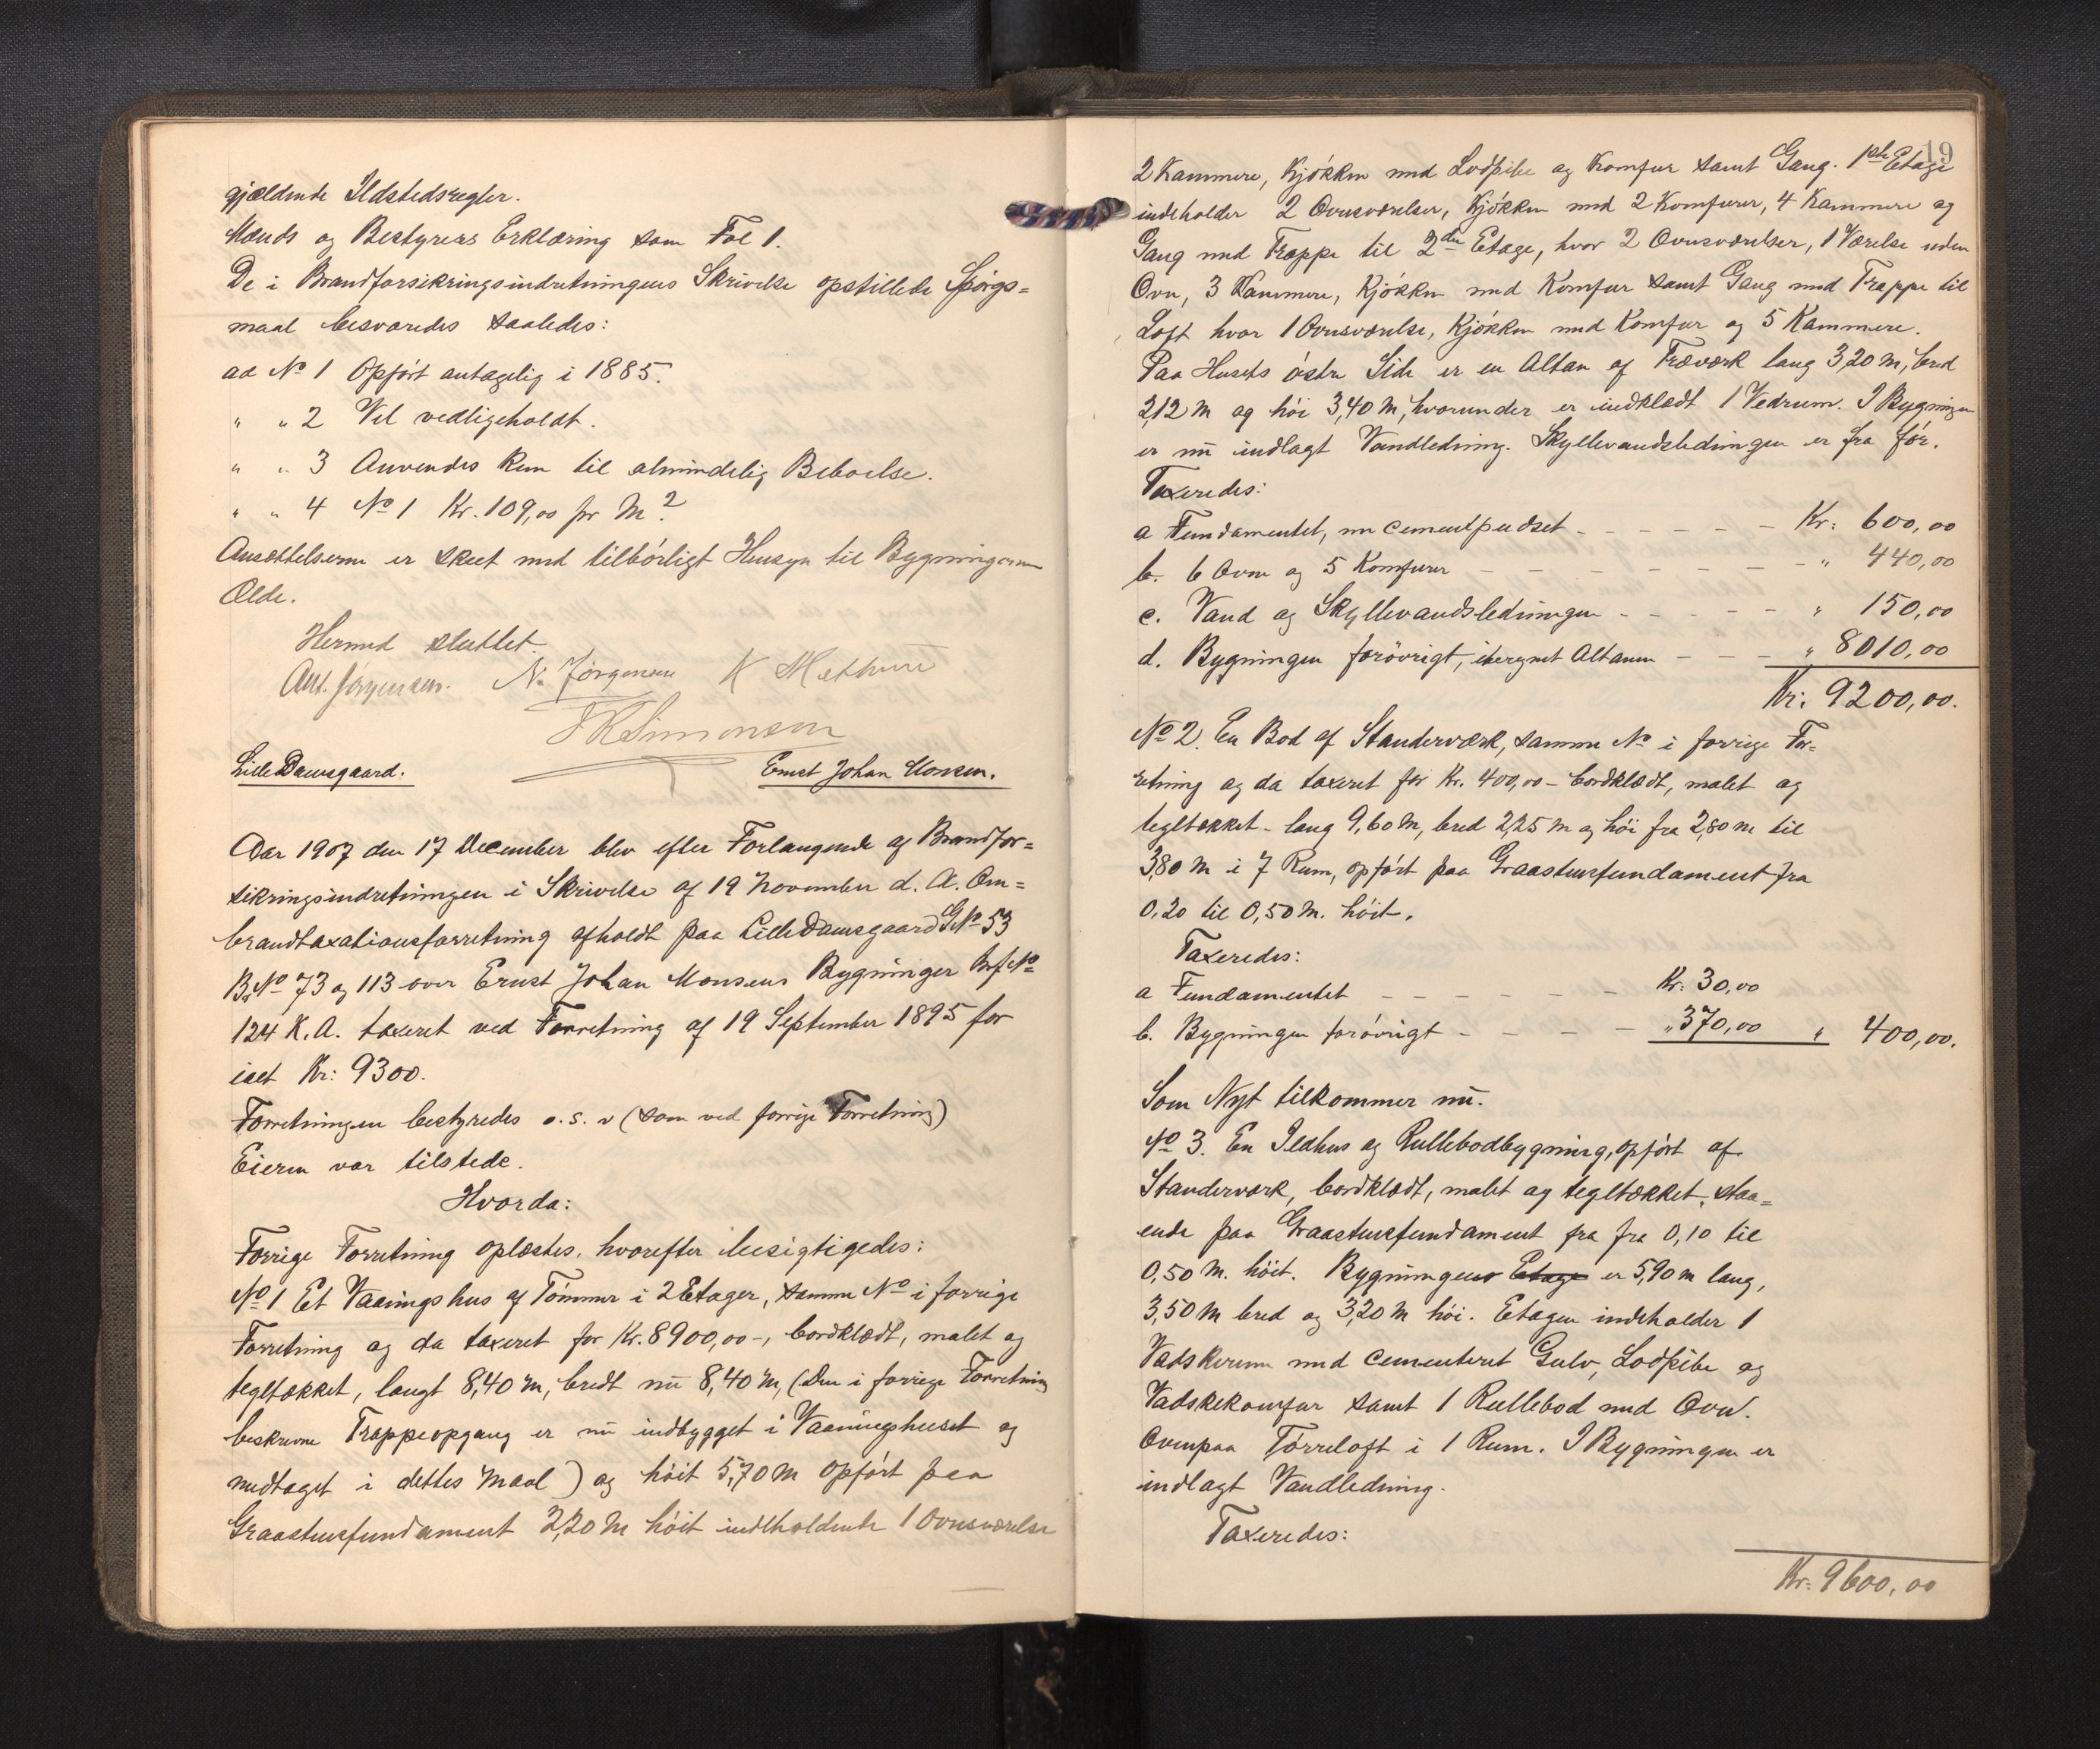 gjældende Ildstedsregler.
Mænds og Bestyrers Erklæring som Fol 1.
De i Brandforsikringsindretningens Skrivelse opstillede Spörgs=
maal besvaredes saaledes:
ad No 1 Opfört antagelig i 1885.
" " 2 Vel vedligeholdt.
" " 3 Anvendes kun til almindelig Beboelse.
" " 4 No 1 Kr. 109,00 pr M2
Ansættelserne er skeet med tilbörligt Hensyn til Bygningernes
Ælde.
Hermed sluttet.
Ant. Jörgensen. N. Jörgensen K Mathum
Simonsen
Lille Damsgaard. Ernst Johan Monsen.
Aar 1907 den 17 December blev efter Forlangende af Brandfor=
sikringsindretningen i Skrivelse af 19 November d. A. Om=
brandtaxationsforretning afholdt paa Lille Damsgaard GNo 53
B.No 73 og 113 over Ernst Johan Monsens Bygninger Brf No
124 K. A. taxeret ved Forretning af 19 September 1895 for
ialt Kr: 9300.
Forretningen bestyredes o. s. v (som ved forrige Forretning)
Eieren var tilstede.
Hvorda:
Forrige Forretning oplæstes, hvorefter besigtigedes:
No 1 Et Vaaningshus af Tömmer i 2 Etager, samme No i forrige
Forretning og da taxeret for Kr. 8900,00 -, bordklædt, malet og
tegltækket, langt 8,40 m, bredt nu 8,40 m, (Den i forrige Forretning
beskrevne Trappeopgang er nu indbygget i Vaaningshuset og
medtaget i dettes Maal) og höit 5,70 m opfört paa
Graastensfundament 2,20 m höit indeholdende 1 Ovnsværelse
19
2 Kammere, Kjökken med Lodpibe og Komfur samt Gang. 1ste Etage
indeholder 2 Ovnsværelser, Kjökken med 2 Komfurer, 4 Kammere og
Gang med Trappe til 2den Etage, hvor 2 Ovnsværelser, 1 Værelse uden
Ovn, 3 Kammere, Kjökken med Komfur samt Gang med Trappe til
Loft hvor 1 Ovnsværelse, Kjökken med Komfur og 5 Kammere.
Paa Husets östre Side er en Altan af Træværk lang 3,20 m, bred
2,12 m og höi 3,40 m, hvorunder er indklædt 1 Vedrum. I Bygningen
er nu indlagt Vandledning. Skyllevandsledningen er fra för.
Taxeredes:
a Fundamentet, nu cementpudset - - - - - Kr: 600,00
b. 6 Ovne og 5 Komfurer - - - - - - " 440,00
c. Vand og Skyllevandsledningen - - - - " 150,00
d. Bygningen forövrigt, iberegnet Altanen - - - " 8010,00
Kr: 9200,00.
No 2. En Bod af Standerværk, samme No i forrige For=
retning og da taxeret for Kr. 400,00 - bordklædt, malet og
tegltækket - lang 9,60 m, bred 2,25 m og höi fra 2,80 m til
3,80 m i 7 Rum, opfört paa Graastensfundament fra
0,20 til 0,50 m. höit.
Taxeredes:
a Fundamentet - - - - - - Kr: 30,00
b. Bygningen forövrigt - - - - " 370,00 " 400,00.
Som Nyt tilkommer nu.
No 3. En Ildhus og Rullebodbygning, opfört af
Standerværk, bordklædt, malet og tegltækket, staa=
ende paa Graastensfundament fra fra 0,10 til
0,50 M. höit. Bygningens Etage er 5,90 m lang,
3,50 m bred og 3,20 m höi. Etagen indeholder 1
Vadskerum med cementeret Gulv, Lodpibe og
Vadskekomfur samt 1 Rullebod med Ovn.
Ovenpaa Törreloft i 1 Rum. I Bygningen er
indlagt Vandledning.
Taxeredes:
Kr: 9600,00